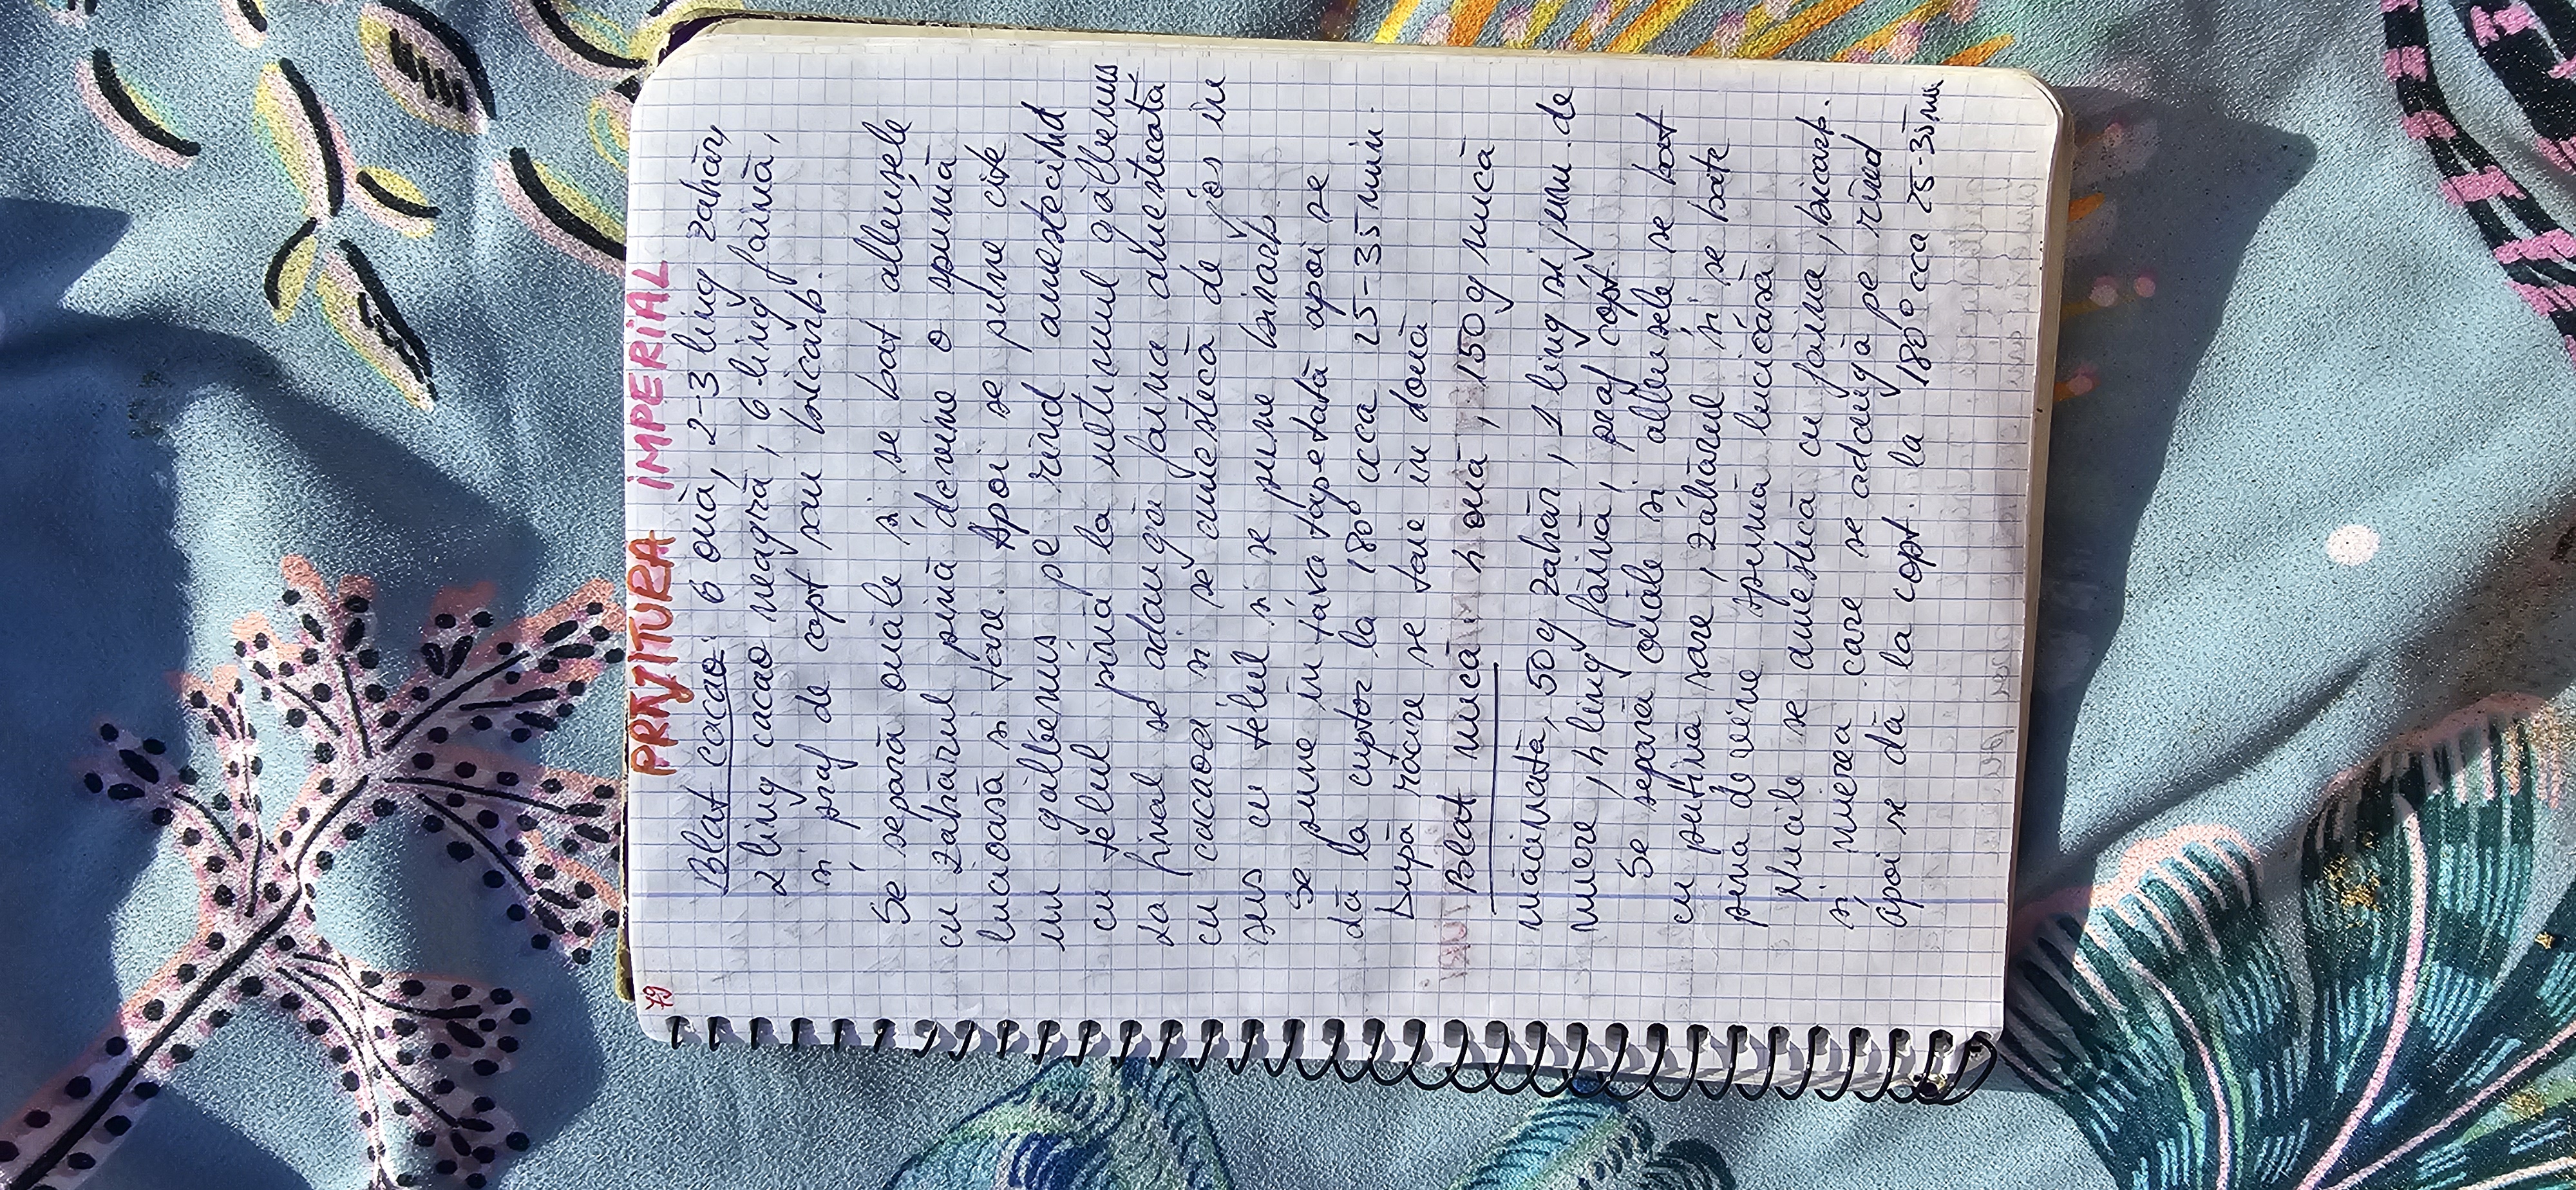 79
PRĂJITURA IMPERIAL
Blat cacao: 6 ouă, 2-3 ling zahăr,
2 ling cacao neagră, 6 ling făină,
și praf de copt sau bicarb.
Se separă ouăle și se bat albușele
cu zahărul pînă devine o spumă
lucioasă și tare. Apoi se pune cîte
un gălbenuș pe rînd amestecînd
cu telul pînă la ultimul gălbenuș
La final se adaugă făina amestecată
cu cacaoa și se amestecă de jos în
sus cu telul și se pune bicarb.
Se pune în tava tapetată apoi se
dă la cuptor la 180° ccca 25-35 min.
După răcire se taie în două
Blat nucă: 4 ouă, 150 g nucă
măcinată, 50 g zahăr, 1 ling și jum. de
miere, 4 ling făină, praf copt.
Se separă ouăle și albușele se bat
cu puțină sare, zahărul și se bate
pina devine spumă lucioasă.
Nucile se amestecă cu făina, bicarb.
și mierea care se adaugă pe rînd
apoi se dă la copt. la 180° cca 25-35 min